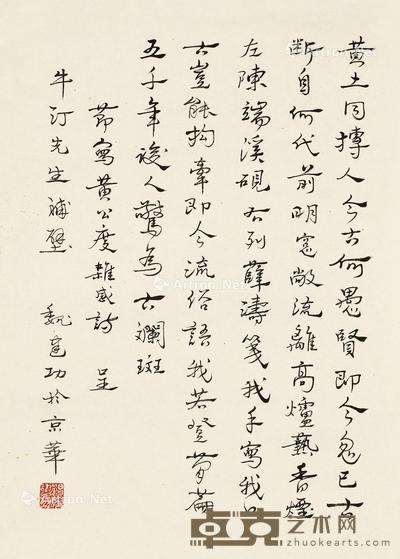 黄土同摶人今古何愚賢即今忽已古
断自何代前明窗敞流離高爐爇香煙
左陳端溪硯右列薛濤箋我手寫我口
古豈能拘牽即今流俗語我若登簡篇
五千年後人驚為古斕斑
節寫黃公度雜感詩 呈
牛汀先生補壁 魏建功於京華
卓克艺术网
www.zhuokearts.com